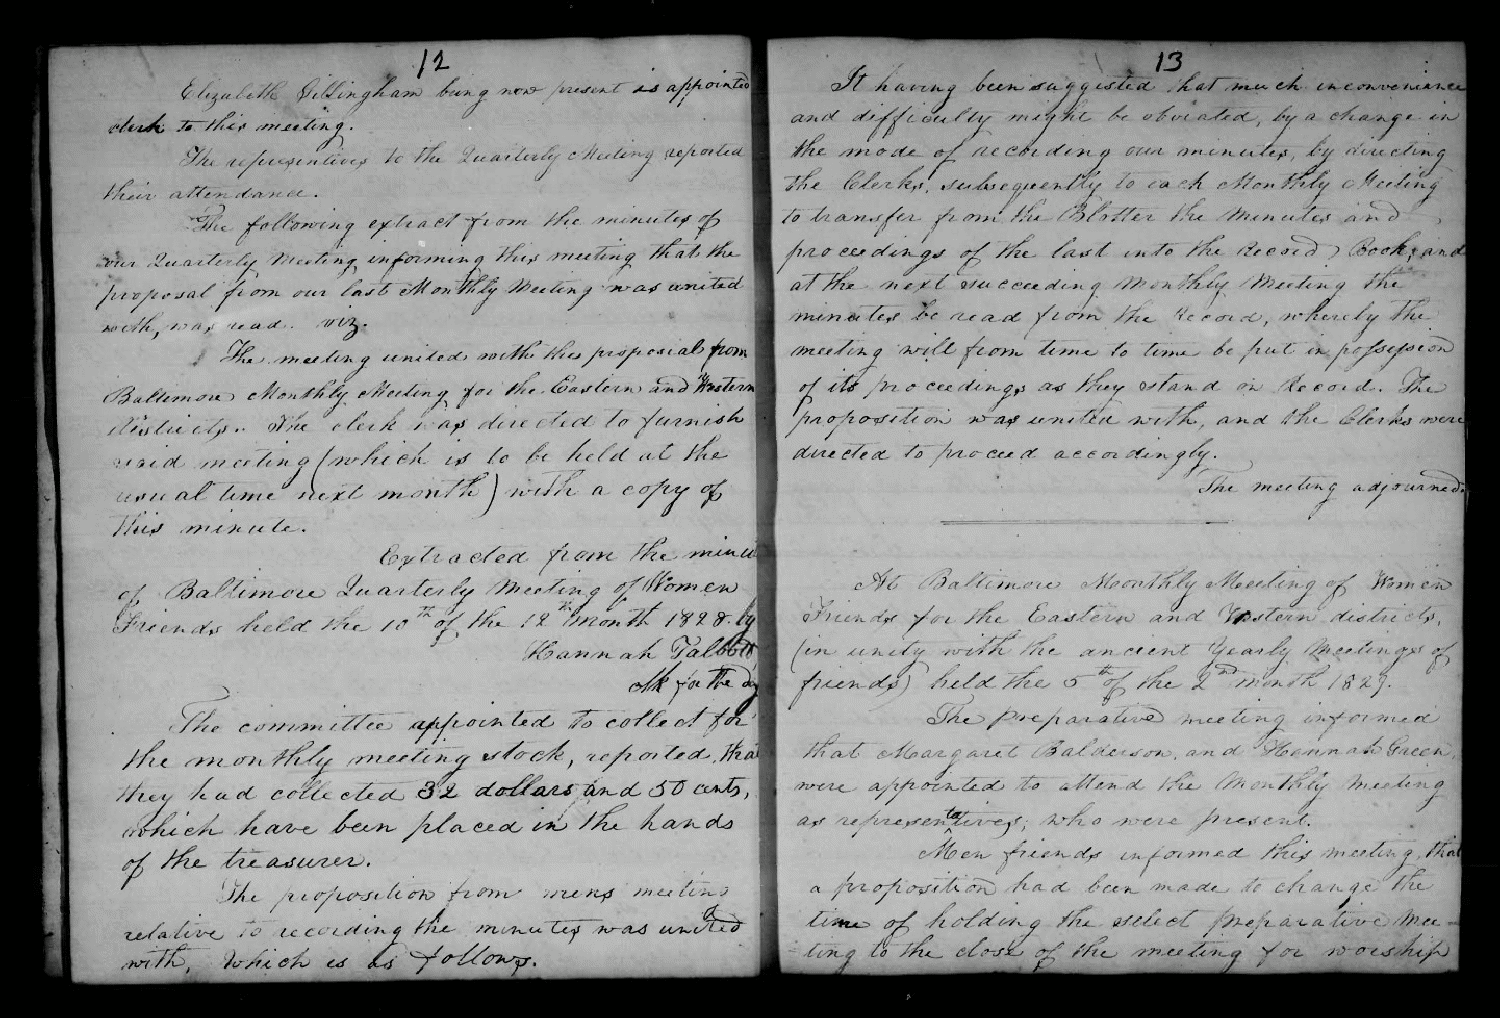 12
Elizabeth Gillingham being now present is appointed
clerk to this meeting.
The representives to the Quarterly Meeting reported
their attendance.
The following extract from the minutes of
our Quarterly Meeting informing this meeting that the
proposal from our last Monthly Meeting was united
with, was read. viz.
The meeting united with the proposial from
Baltimore Monthly Meeting for the Eastern and Western
Districts. The clerk was directed to furnish
said meeting (which is to be held at the
usual time next month) with a copy of
this minute.
Extracted from the minut
of Baltimore Quarterly Meeting of Women
Friends held the 10th of the 12th month 1828. by
Hannah Talbott
clk for the day
The committee appointed to collect for
the monthly meeting stock, reported, that
they had collected 32 dollars and 50 cents,
which have been placed in the hands
of the treasurer.
The proposition from mens meeting
relative to recording the minutes was united
with, which is as follows.
13
It having been suggested that much inconvenience
and difficulty might be obviated, by a change in
the mode of recording our minutes, by directing
the Clerks, subsequently to each Monthly Meeting
to transfer from the Blotter the Minutes and
proceedings of the last into the Record Book; and
at the next succeeding Monthly Meeting the
minutes be read from the Record, whereby the
meeting will from time to time be put in possession
of its proceedings as they stand on Record. The
proposition was united with, and the Clerks were
directed to proceed accordingly.
The meeting adjourned.
At Baltimore Monthly Meeting of Women
Friends for the Eastern and Western districts,
(in unity with the ancient Yearly Meetings of
friends) held the 5th of the 2nd month 1829.
The Preparative meeting informed
that Margaret Balderson, and Hannah Green,
were appointed to attend the Monthly Meeting
as representatives; who were present.
Men friends informed this meeting, that
a proposition had been made to change the
time of holding the select Preparative Mee-
ting to the close of the meeting for worship